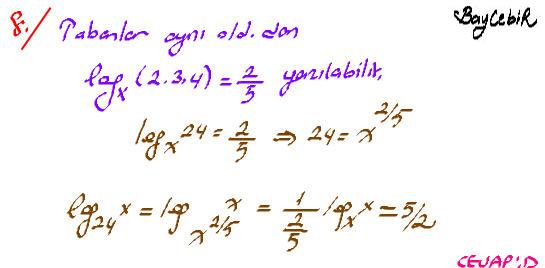 BayCebiR
8./ Tabanlar aynı old. dan
log_x (2.3.4) = 2/5 yazılabilir.
log_x 24 = 2/5 ⇒ 24 = x^{2/5}
log_24 x = log_{x^{2/5}} x = 1/(2/5) log_x x = 5/2
CEVAP:D